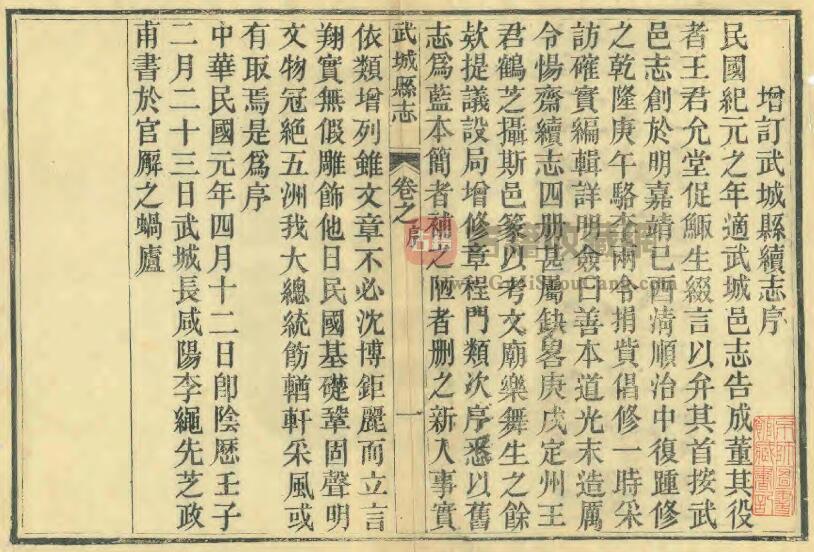 增訂武城縣續志序
民國紀元之年適武城邑志告成董其役
者王君允堂促鯫生綴言以弁其首按武
邑志創於明嘉靖己酉清順治中復踵修
之乾隆庚午駱李兩令捐貲倡修一時采
訪確實編輯詳明僉曰善本道光末造厲
令惕齋續志四册甚屬缺畧庚戌定州王
君鶴芝攝斯邑篆以考文廟樂舞生之餘
欵提議設局增修章程門類次序悉以舊
志爲藍本簡者補之陋者删之新入事實
武城縣志 卷之 序 一
依類增列雖文章不必沈博鉅麗而立言
翔實無假雕飾他日民國基礎鞏固聲明
文物冠絶五洲我大總統飭輶軒采風或
有取焉是爲序
中華民國元年四月十二日卽陰歷壬子
二月二十三日武城長咸陽李繩先芝政
甫書於官廨之蝸廬